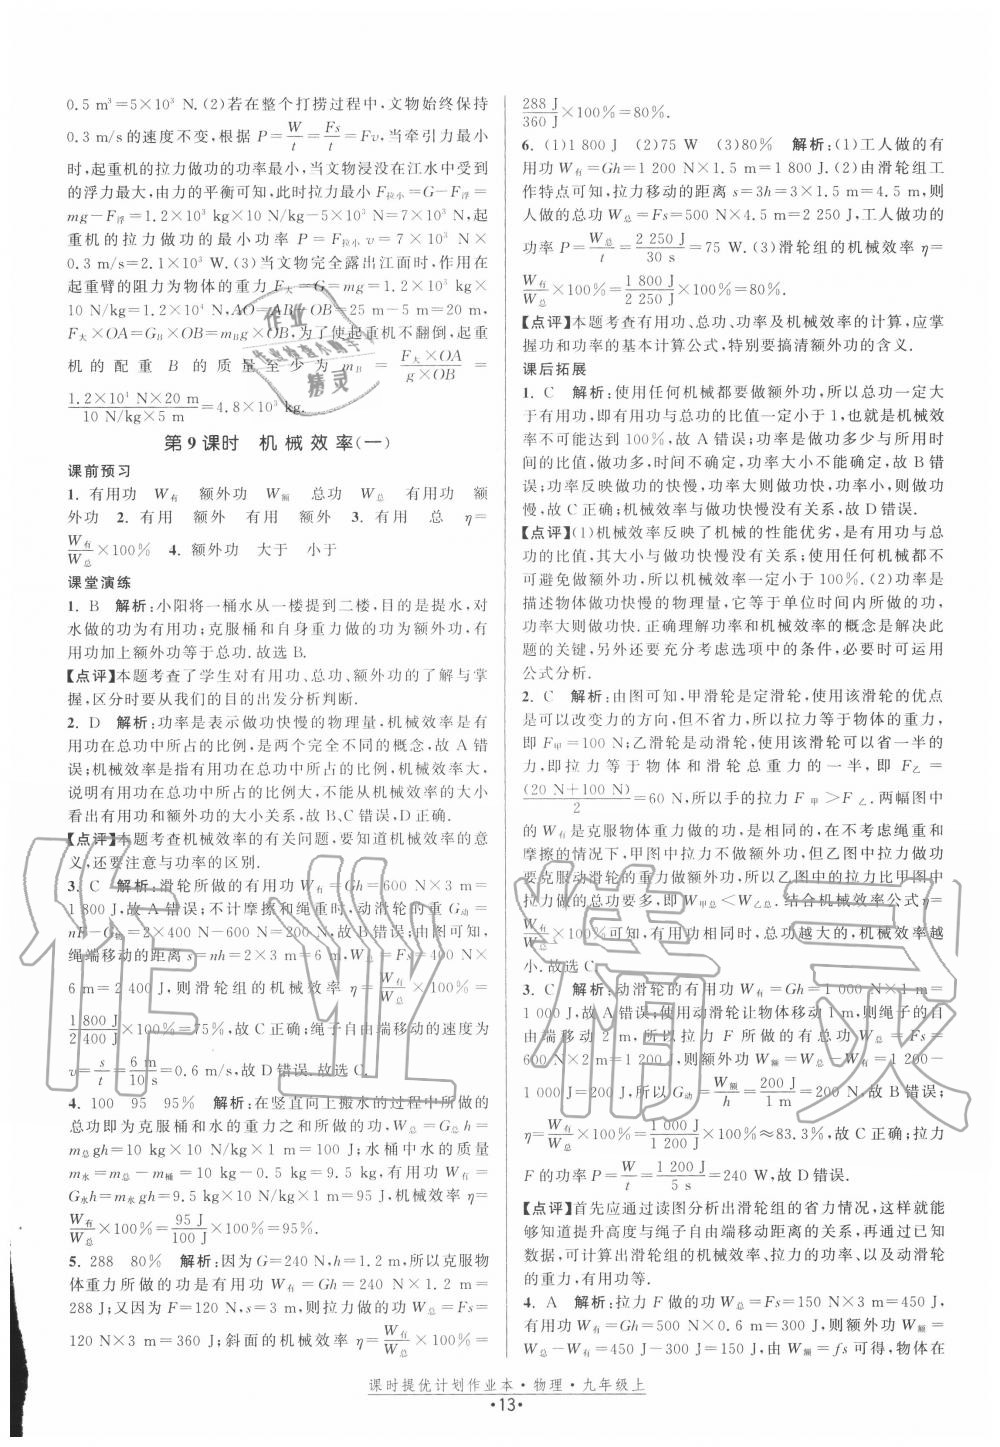 0.5 m³=5×10³ N.(2)若在整个打捞过程中,文物始终保持
0.3 m/s的速度不变,根据 P=W/t=Fs/t=Fv,当牵引力最小
时,起重机的拉力做功的功率最小,当文物浸没在江水中受到
的浮力最大,由力的平衡可知,此时拉力最小 F拉小=G-F浮=
mg-F浮=1.2×10³ kg×10 N/kg-5×10³N=7×10³ N,起
重机的拉力做功的最小功率 P=F拉小v=7×10³ N×
0.3 m/s=2.1×10³ W.(3)当文物完全露出江面时,作用在
起重臂的阻力为物体的重力 F大=G=mg=1.2×10³ kg×
10 N/kg=1.2×10⁴ N,AO=AB-OB=25 m-5 m=20 m,
F大×OA=G_B×OB=m_Bg×OB,为了使起重机不翻倒,起重
机的配重 B 的质量至少为 m_B=(F大×OA)/(g×OB)=
(1.2×10⁴ N×20 m)/(10 N/kg×5 m)=4.8×10³ kg.
第 9 课时 机械效率(一)
课前预习
1. 有用功 W有 额外功 W额 总功 W总 有用功 额
外功 2. 有用 额外 有用 额外 3. 有用 总 η=
W有/W总×100% 4. 额外功 大于 小于
课堂演练
1. B 解析:小阳将一桶水从一楼提到二楼,目的是提水,对
水做的功为有用功;克服桶和自身重力做的功为额外功,有
用功加上额外功等于总功.故选 B.
【点评】本题考查了学生对有用功、总功、额外功的了解与掌
握,区分时要从我们的目的出发分析判断.
2. D 解析:功率是表示做功快慢的物理量,机械效率是有
用功在总功中所占的比例,是两个完全不同的概念,故 A 错
误;机械效率是指有用功在总功中所占的比例,机械效率大,
说明有用功在总功中所占的比例大,不能从机械效率的大小
看出有用功和总功的大小关系,故 B、C 错误,D 正确.
【点评】本题考查机械效率的有关问题,要知道机械效率的意
义,还要注意与功率的区别.
3. C 解析:滑轮所做的有用功 W有=Gh=600 N×3 m=
1 800 J,故 A 错误;不计摩擦和绳重时,动滑轮的重 G动=
nF-G物=2×400 N-600 N=200 N,故 B 错误;由图可知,
绳端移动的距离 s=nh=2×3 m=6 m,W总=Fs=400 N×
6 m=2 400 J,则滑轮组的机械效率 η=W有/W总×100%=
1 800 J/2 400 J×100%=75%,故 C 正确;绳子自由端移动的速度为
v=s/t=6 m/10 s=0.6 m/s,故 D 错误.故选 C.
4. 100 95 95% 解析:在竖直向上搬水的过程中所做的
总功即为克服桶和水的重力之和所做的功,W总=G总h=
m总gh=10 kg×10 N/kg×1 m=100 J;水桶中水的质量
m水=m总-m桶=10 kg-0.5 kg=9.5 kg;有用功 W有=
G水h=m水gh=9.5 kg×10 N/kg×1 m=95 J,机械效率 η=
W有/W总×100%=95 J/100 J×100%=95%.
5. 288 80% 解析:因为G=240 N,h=1.2 m,所以克服物
体重力所做的功是有用功 W有=Gh=240 N×1.2 m=
288 J;又因为 F=120 N,s=3 m,则拉力做的功 W总=Fs=
120 N×3 m=360 J;斜面的机械效率 η=W有/W总×100%=
288 J/360 J×100%=80%.
6. (1)1 800 J (2)75 W (3)80% 解析:(1)工人做的有
用功 W有=Gh=1 200 N×1.5 m=1 800 J.(2)由滑轮组工
作特点可知,拉力移动的距离 s=3h=3×1.5 m=4.5 m,则
人做的总功 W总=Fs=500 N×4.5 m=2 250 J,工人做功的
功率 P=W总/t=2 250 J/30 s=75 W.(3)滑轮组的机械效率 η=
W有/W总×100%=1 800 J/2 250 J×100%=80%.
【点评】本题考查有用功、总功、功率及机械效率的计算,应掌
握功和功率的基本计算公式,特别要搞清额外功的含义.
课后拓展
1. C 解析:使用任何机械都要做额外功,所以总功一定大
于有用功,即有用功与总功的比值一定小于 1,也就是机械效
率不可能达到 100%,故 A 错误;功率的大小与做功多少
和做功时间都有关,做功多,时间不确定,功率大小不能确定,故 B 错
误;功率反映做功的快慢,功率大则做功快,功率小,则做功
慢,故 C 正确;机械效率与做功快慢没有关系,故 D 错误.
【点评】(1)机械效率反映了机械的性能优劣,是有用功与总
功的比值,其大小与做功快慢没有关系;使用任何机械都不
可避免做额外功,所以机械效率一定小于 100%.(2)功率是
描述物体做功快慢的物理量,它等于单位时间内所做的功,
功率大则做功快.正确理解功率和机械效率的概念是解决此
题的关键,另外还要充分考虑选项中的条件,必要时可运用
公式分析.
2. C 解析:由图可知,甲滑轮是定滑轮,使用该滑轮的优点
是可以改变力的方向,但不省力,所以拉力等于物体的重力,
即 F甲=100 N;乙滑轮是动滑轮,使用该滑轮可以省一半的
力,即拉力等于物体和滑轮总重力的一半,即 F乙=
(20 N+100 N)/2=60 N,所以手的拉力 F甲>F乙.两幅图中
的 W有是克服物体重力做的功,是相同的,在不考虑绳重和
摩擦的情况下,甲图中拉力不做额外功,但乙图中拉力做功
要克服动滑轮的重力做额外功,所以乙图中的拉力比甲图中
拉力做的总功要多,即 W甲总<W乙总.结合机械效率公式 η=
W有/W总×100%可知,有用功相同时,总功越大的,机械效率越
小.故选 C.
3. C 解析:动滑轮的有用功 W有=Gh=1 000 N×1 m=
1 000 J,故 A 错误;使用动滑轮让物体移动 1 m,则绳子的自
由端移动 2 m,所以拉力 F 所做的有总功 W总=Fs=
600 N×2 m=1 200 J,则额外功 W额=W总-W有=1 200-
1 000 J=200 J,所以 G动=W额/h=200 J/1 m=200 N,故 B 错误;
η=W有/W总×100%=1 000 J/1 200 J×100%≈83.3%,故 C 正确;拉力
F 的功率 P=W/t=1 200 J/5 s=240 W,故 D 错误.
【点评】首先应通过读图分析出滑轮组的省力情况,这样就能
够知道提升高度与绳子自由端移动距离的关系,再通过已知
数据,可计算出滑轮组的机械效率、拉力的功率、以及动滑轮
的重力,有用功等.
4. A 解析:拉力 F 做的功 W总=Fs=150 N×3 m=450 J,
有用功 W有=Gh=500 N×0.6 m=300 J,则额外功 W额=
W总-W有=450 J-300 J=150 J,由 W额=fs 可得,物体在
课时提优计划作业本·物理·九年级上
·13·
作业精灵